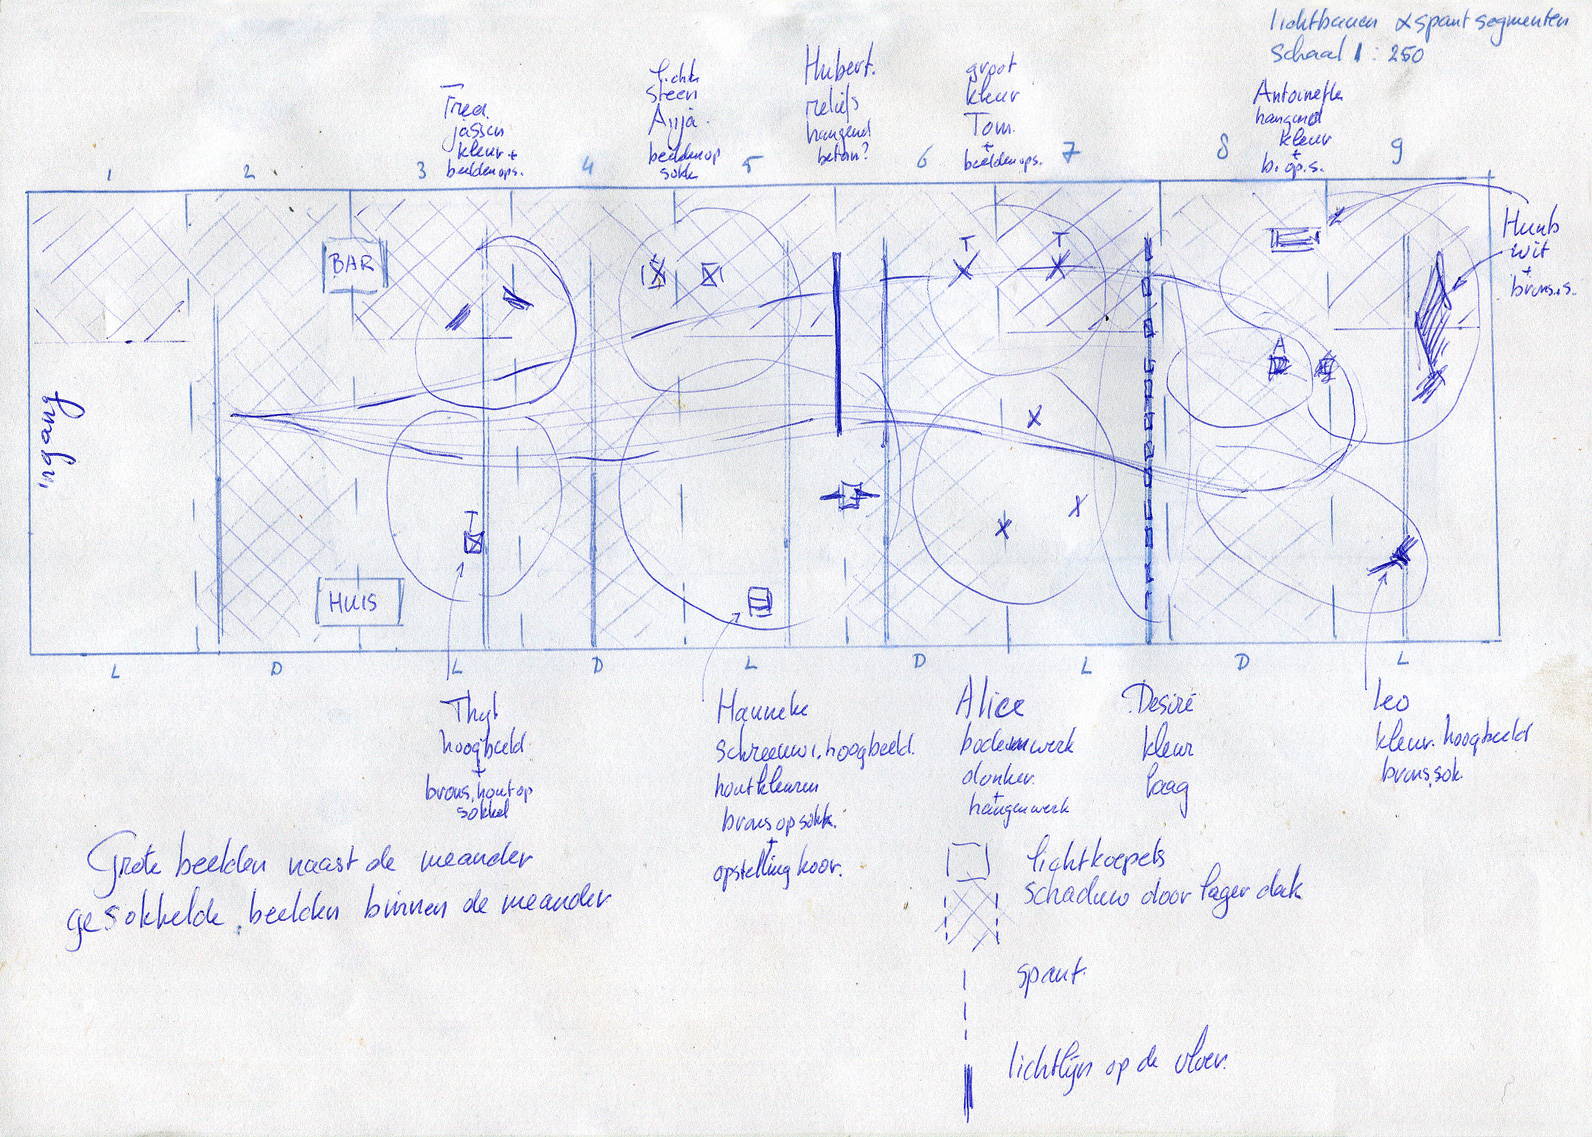 lichtbanen & spant segmenten
schaal 1:250
Fred.
jassen
kleur +
beelden ops.
licht
steen
Anja.
beelden op
sokk
Hubert.
reliëfs
hangend
beton?
groot
kleur
Tom.
+
beelden ops.
Antoinette
hangend
kleur
+
b. op. s.
1 2 3 4 5 6 7 8 9
Huub
wit
+
brons.s.
BAR
T T
A
ingang
T
HUIS
L D L D L D L D L
Thyl
hoogbeeld
+
brons, hout op
sokkel
Hanneke
schreeuw, hoogbeeld.
hout kleuren
brons op sokk.
+
opstelling koor.
Alice
bodemwerk
donker.
+
hangenwerk
Desiré
kleur
laag
Leo
kleur. hoogbeeld
brons, sok.
Grote beelden naast de meander
gesokkelde beelden binnen de meander
lichtkoepels
schaduw door lager dak
spant.
lichtlijn op de vloer.